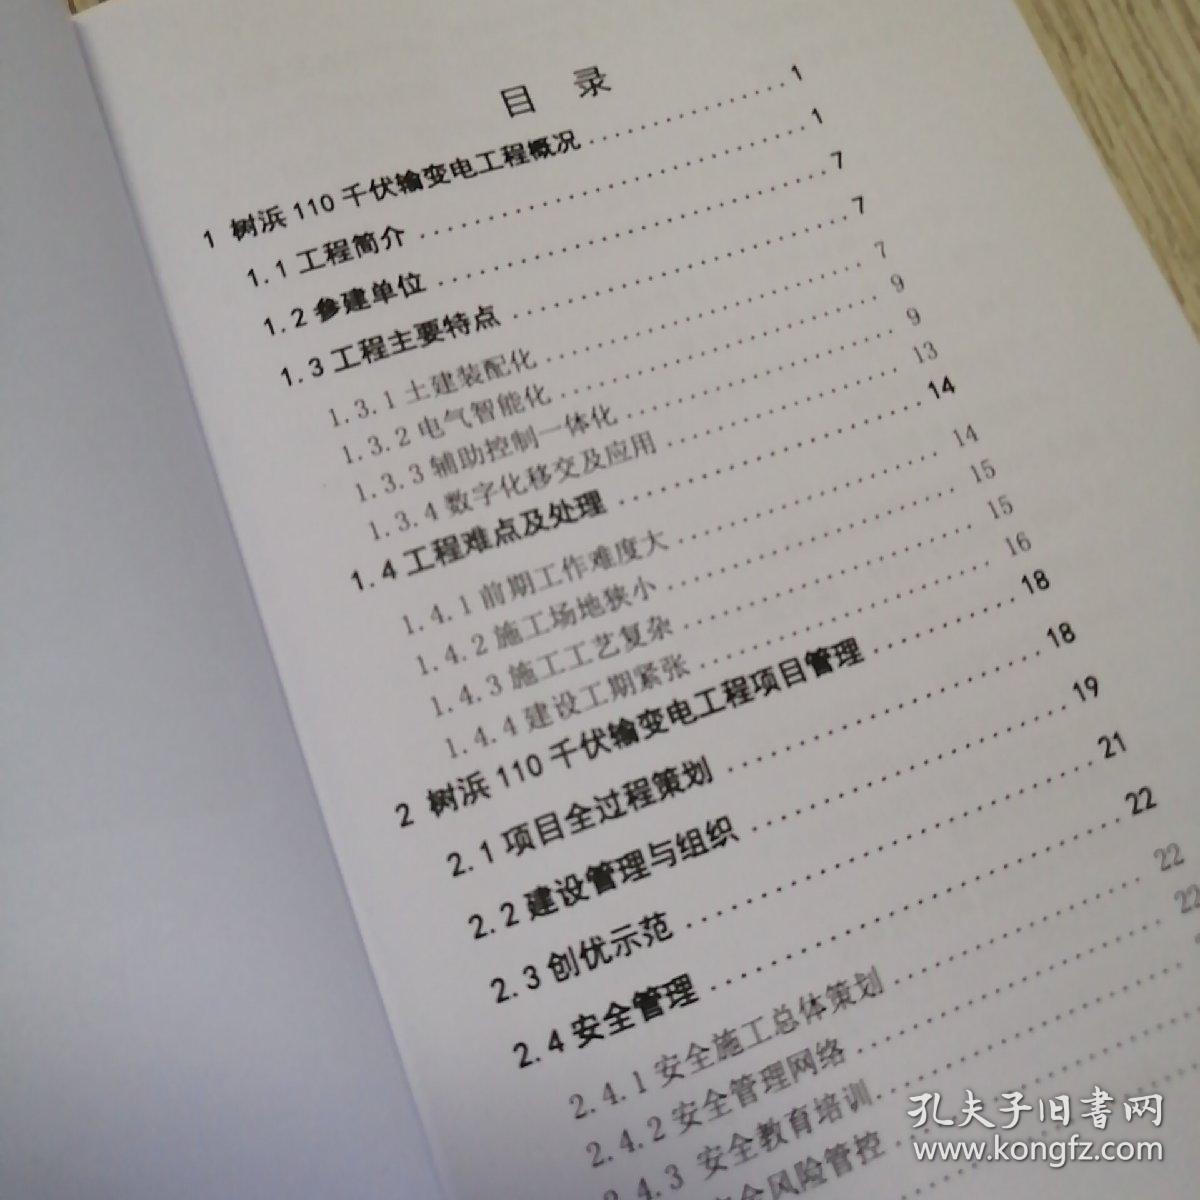 目 录
1 树浜110千伏输变电工程概况 1
1.1 工程简介 1
1.2 参建单位 7
1.3 工程主要特点 7
1.3.1 土建装配化 7
1.3.2 电气智能化 9
1.3.3 辅助控制一体化 9
1.3.4 数字化移交及应用 13
1.4 工程难点及处理 14
1.4.1 前期工作难度大 14
1.4.2 施工场地狭小 15
1.4.3 施工工艺复杂 15
1.4.4 建设工期紧张 16
2 树浜110千伏输变电工程项目管理 18
2.1 项目全过程策划 18
2.2 建设管理与组织 19
2.3 创优示范 21
2.4 安全管理 22
2.4.1 安全施工总体策划 22
2.4.2 安全管理网络 22
2.4.3 安全教育培训
安全风险管控
孔夫子旧书网
www.kongfz.com